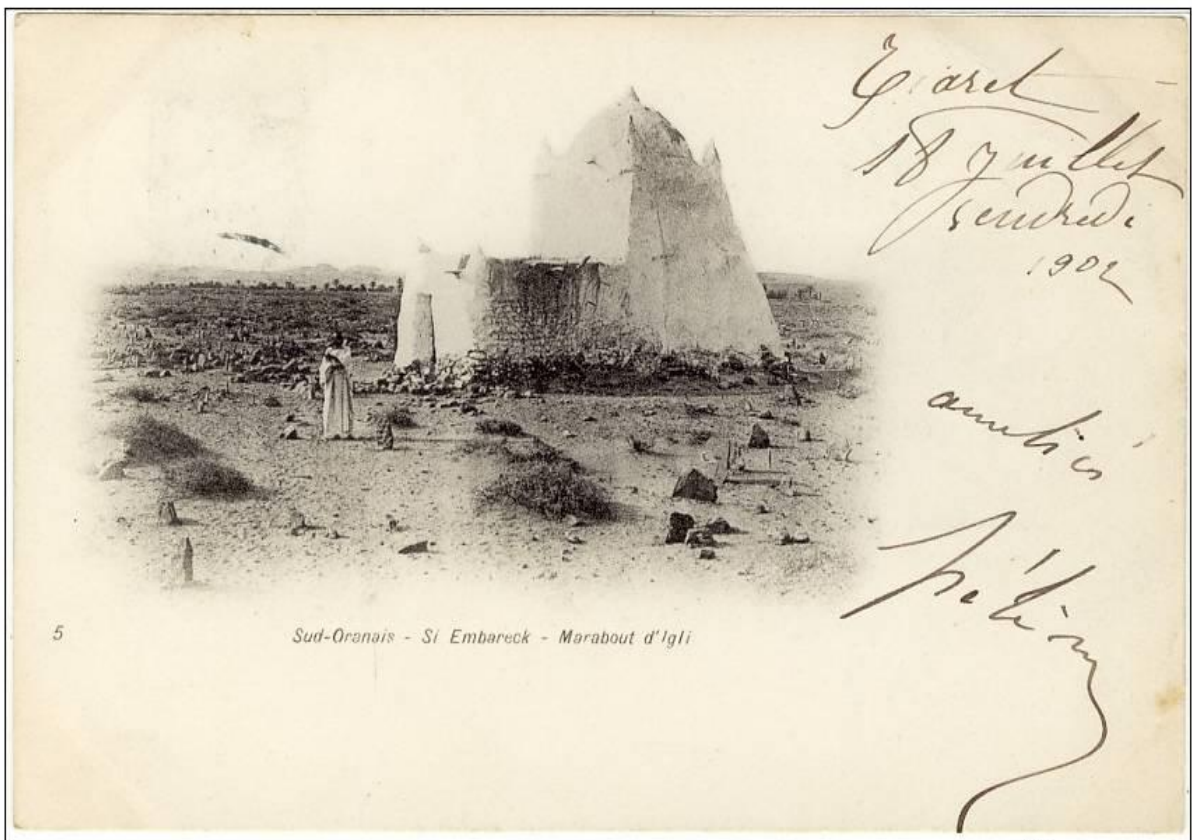 Tiaret
18 Juillet
Vendredi
1902
amitiés
5
Sud-Oranais - Si Embareck - Marabout d'Igli